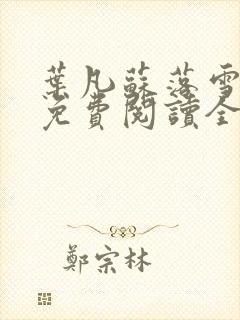 葉凡蘇落雪
免費閱讀全
鄭宗林